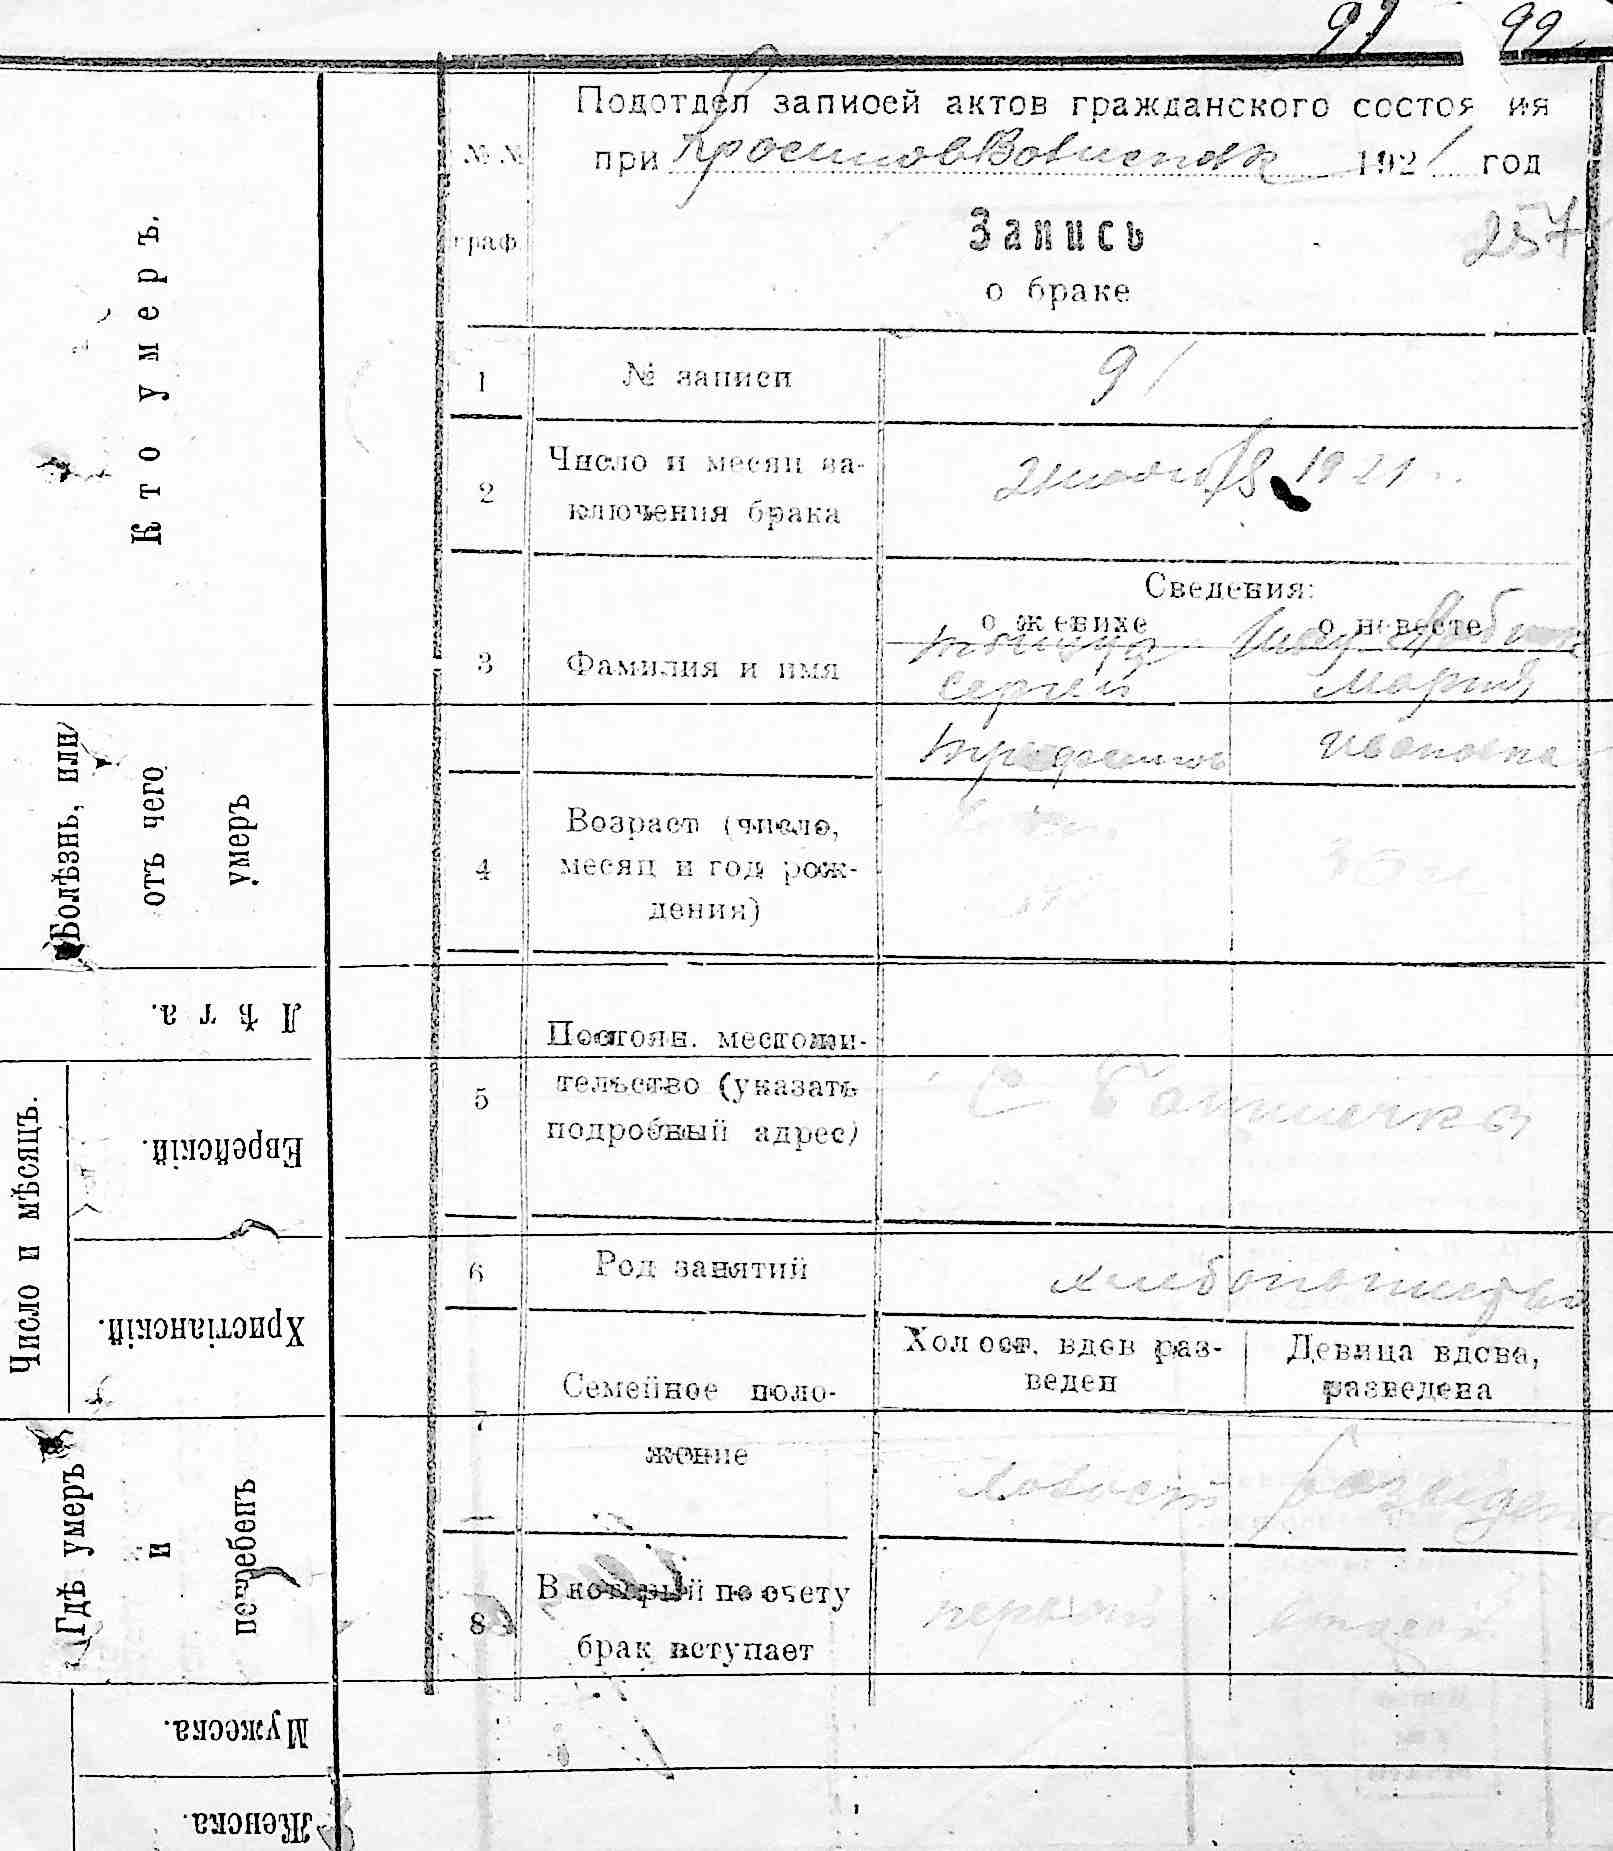 99 99
Подотдел записей актов гражданского состояния
при 1921 год
№ №
граф.
Запись
257
о браке
1 № записи 91
2 Число и месяц за-
ключения брака 1921 г.
Сведения:
о женихе о невесте
3 Фамилия и имя
Сергей Мария
Ивановна
4 Возраст (число,
месяц и год рож-
дения)
5 Постоян. местожи-
тельство (указать
подробный адрес)
с
6 Род занятий хлебопашество
7 Семейное поло-
жение
Холост, вдов раз-
веден
Девица вдова,
разведена
холост разведена
8 В который по счету
брак вступает
первый второй
Кто умеръ.
Болѣзнь, или
отъ чего
умеръ
Лѣта.
Число и мѣсяцъ.
Еврейскій.
Христіанскій.
Гдѣ умеръ
и
погребенъ
Мужеска.
Женска.